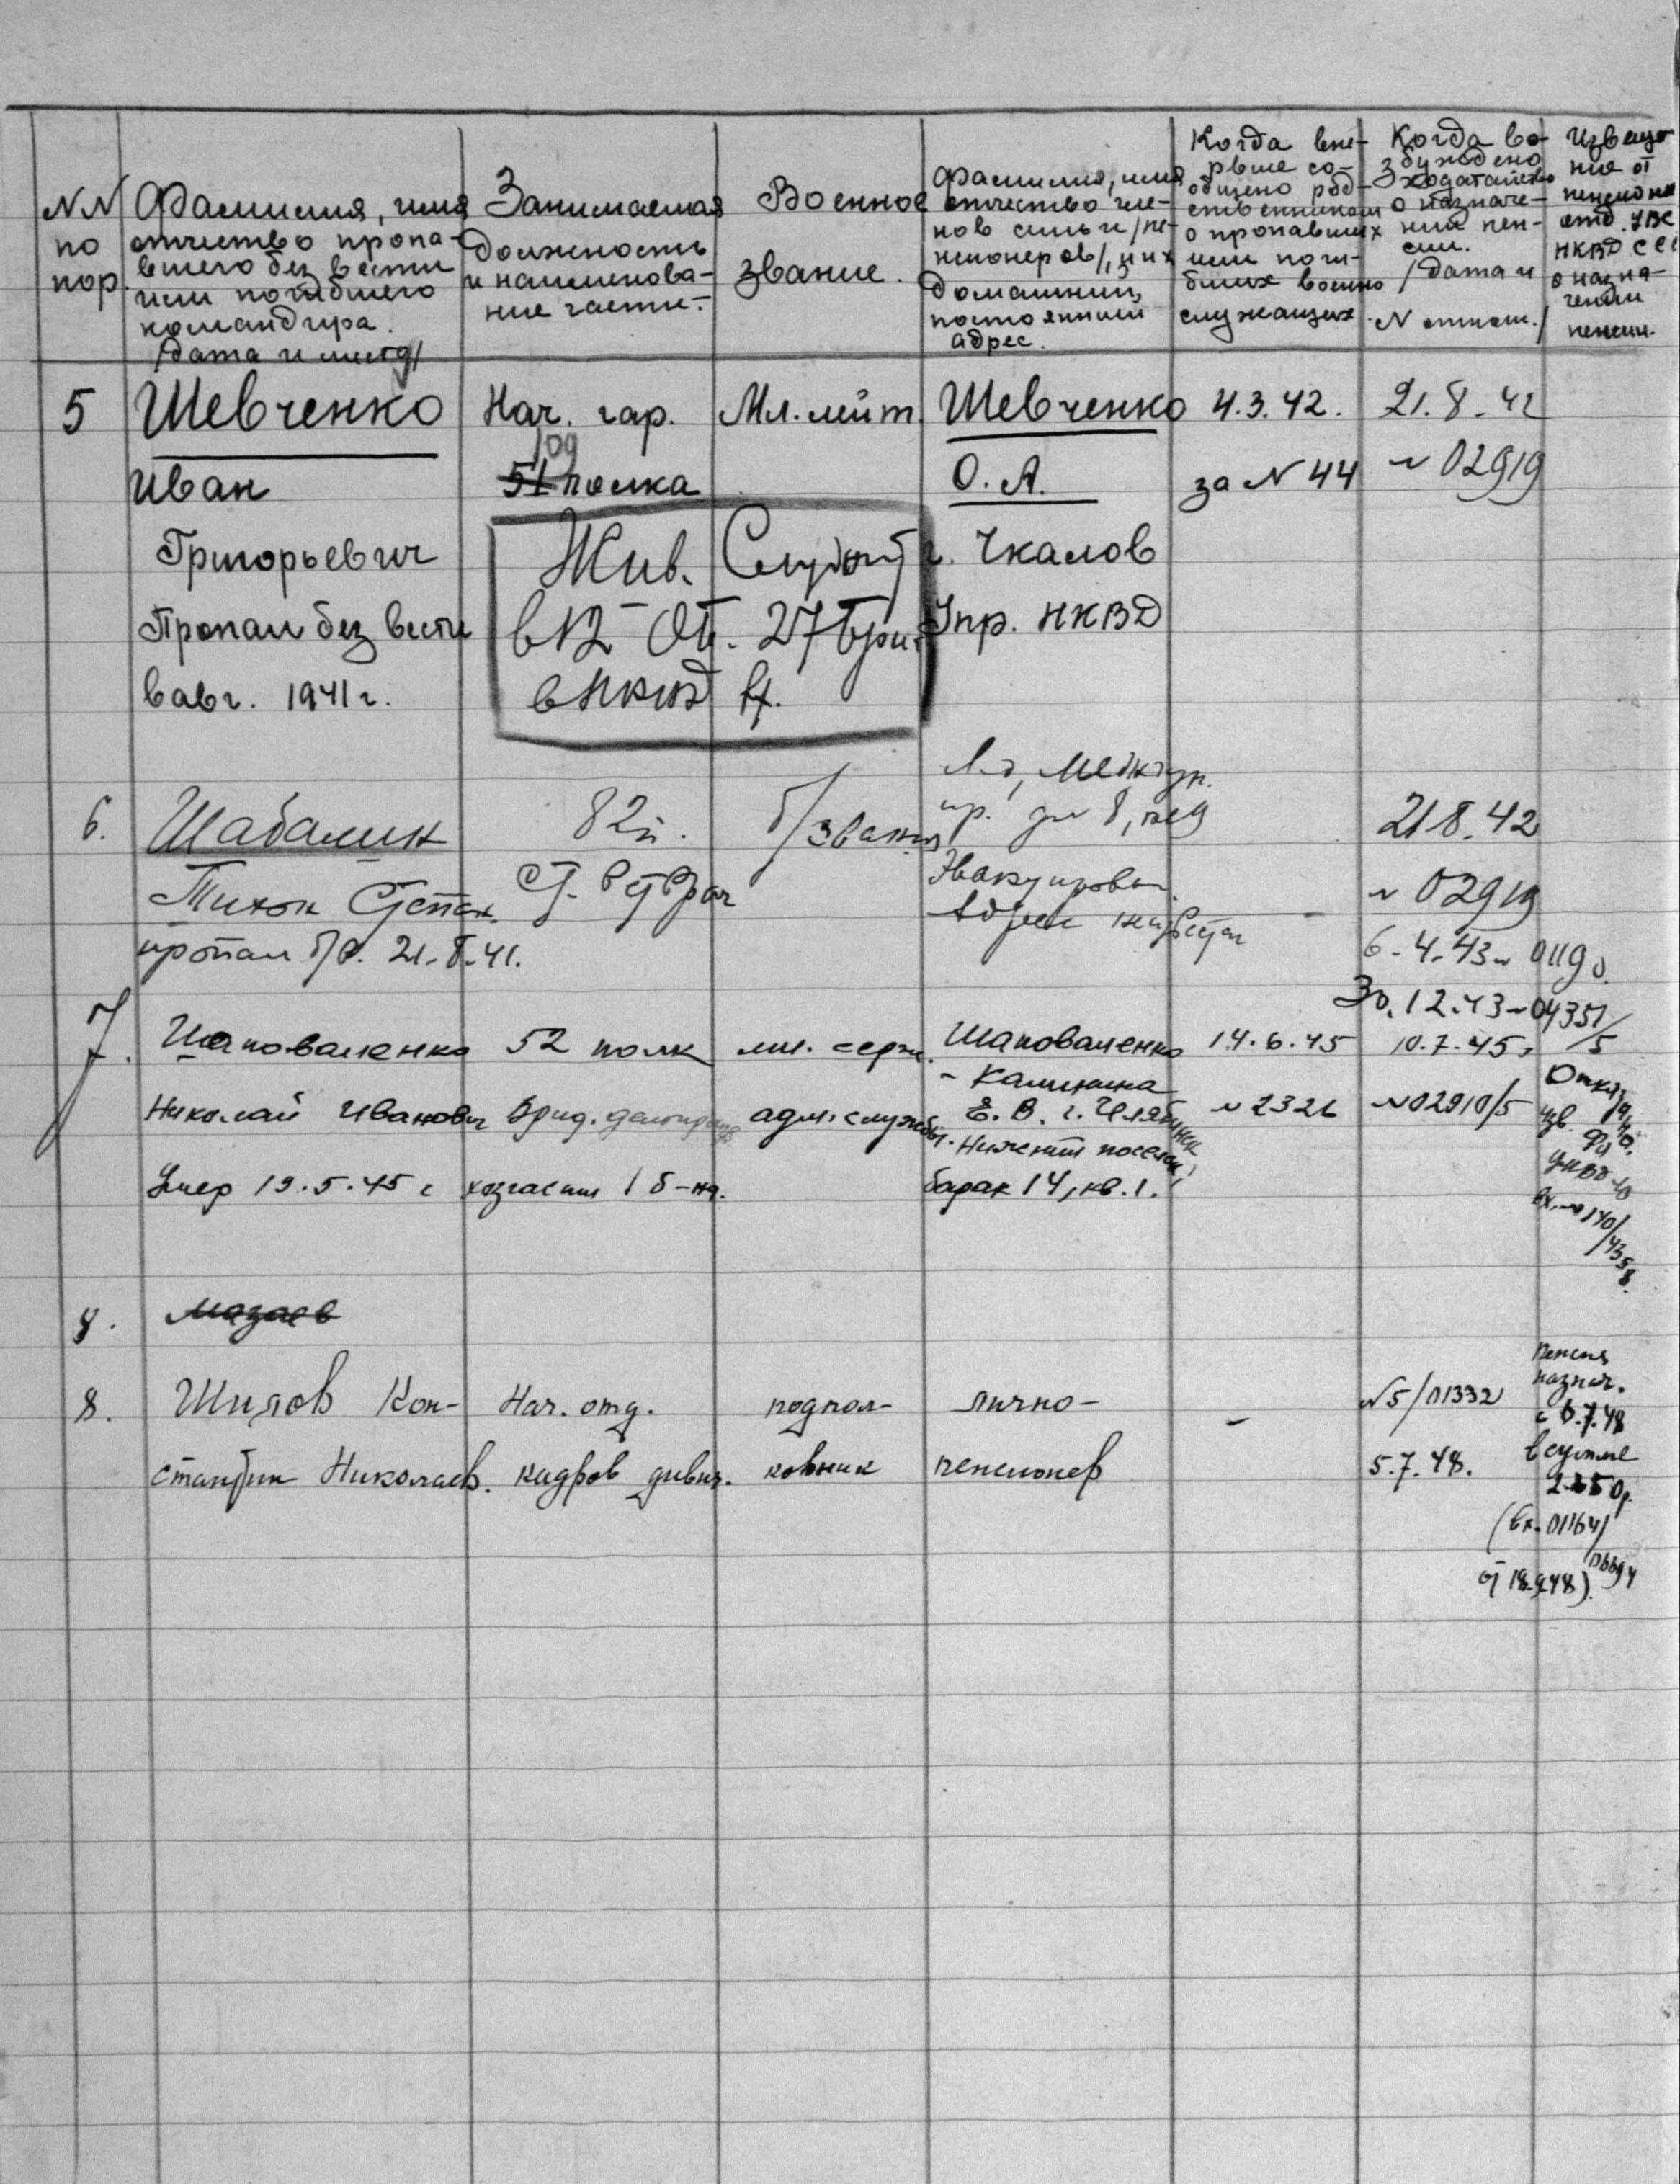 NN
по
пор.
Фамилия, имя
отчество пропа-
вшего без вести
или погибшего
командира.
/дата и место/
Занимаемая
должность
и наименова-
ние части.-
Военное
звание.
Фамилия, имя
отчество чле-
нов семьи /пе-
нсионеров/, и их
домашний,
постоянный
адрес.
Когда впе-
рвые со-
общено род-
ственникам
о пропавших
или поги-
бших военно
служащих.
Когда во-
збуждено
ходатайство
о назначе-
нии пен-
сии.
/Дата и
N отнош./
Извеще
ние от
пенсионно
отд. УВС
НКВД ССС
о назна-
чении
пенсии.
5
Шевченко
Иван
Григорьевич
Пропал без вести
в авг. 1941 г.
Нач. гар.
109
51 полка
Жив. Служит
27 бриг.
НКВД
Мл. лейт.
Шевченко
О. А.
г. Чкалов
Упр. НКВД
4.3.42.
за N 44
21.8.42
N 02919
6.
Шабалин
Тихон Степан.
пропал б/в. 21.8.41.
82п.
Ст. Ветврач
б/звания
пр.
Эвакуирован
Адрес неизвестен
21.8.42
N 02919
6.4.43 N 01190
30.12.43 N 04351/5
7.
Шаповаленко
Николай Иванович
Умер 19.5.45 г
52 полк
хозчасти 1 б-на.
мл. серж.
адм. службы.
Шаповаленко
- Калинина
Е. В. г. Челябинск
поселок,
барак 14, кв. 1.
14.6.45
N 2326
10.7.45 г
N 02910/5
Отказано.
изв.
ФО
УНКВД ЛО
вх. N 140/4358.
8.
Мазаев
8.
Шилов Кон-
стантин Николаев.
Нач. отд.
кадров дивиз.
подпол-
ковник
лично-
пенсионер
-
N 5/01332
5.7.48.
Пенсия
назнач.
с 6.7.48
в сумме
(вх. 01164/
от 18.9.48).